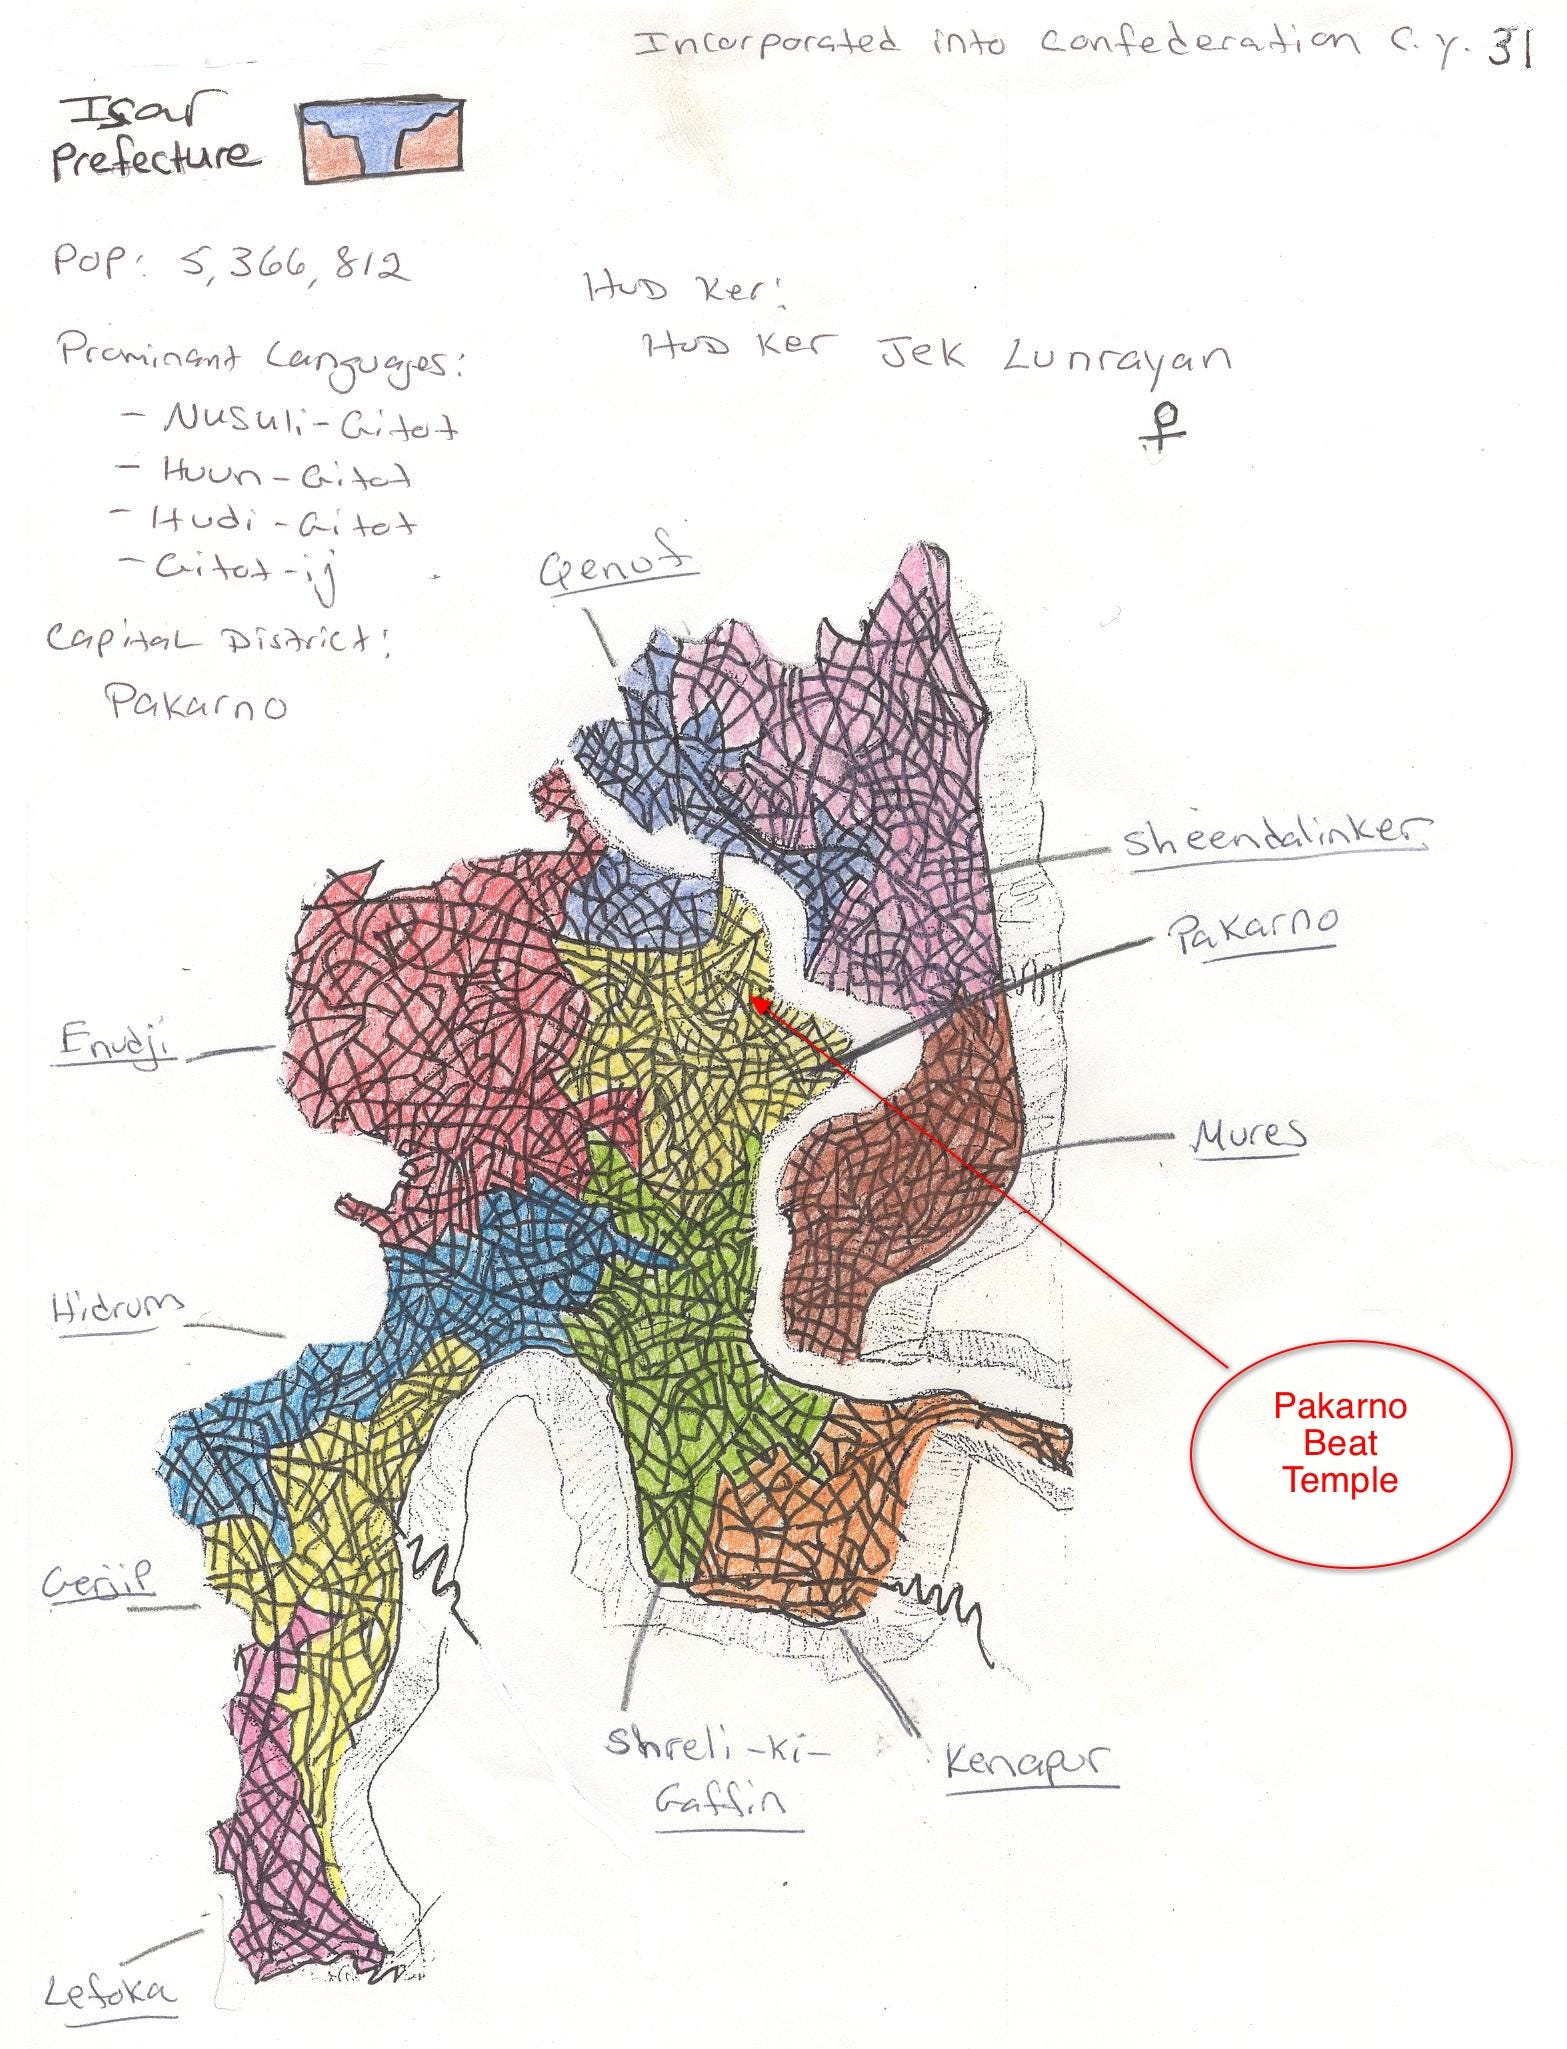 Incorporated into Confederation C.Y. 31
Isar
Prefecture
Pop: 5,366,812
HUD Ker:
HUD Ker Jek Lunrayan
Prominant Languages:
- Nusuli-Gitot
- Huun-Gitot
- Hudi-Gitot
- Gitot-ij
Capital District:
Pakarno
Qenut
Sheendalinker
Pakarno
Enudji
Mures
Hidrum
Pakarno
Beat
Temple
Shreli-Ki-
Gaffin
Kenapur
Lefoka